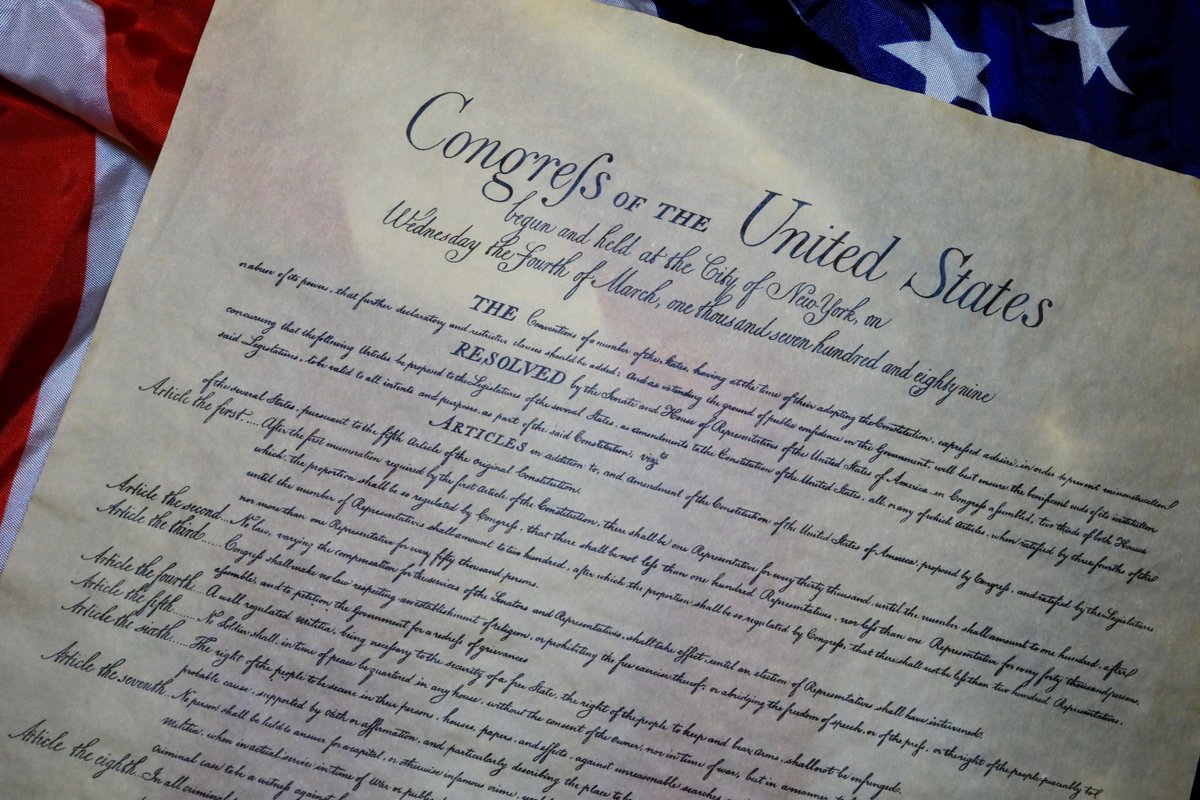 Congreſs OF THE United States
begun and held at the City of New-York, on
Wednesday the Fourth of March, one thousand seven hundred and eighty nine
THE Conventions of a number of the States, having at the time of their adopting the Constitution, expreſsed a desire, in order to prevent misconstruction
or abuse of its powers, that further declaratory and restrictive clauses should be added: And as extending the ground of public confidence in the Government, will best insure the beneficent ends of its institution
RESOLVED by the Senate and House of Representatives of the United States of America, in Congreſs aſsembled, two thirds of both Houses
concurring that the following Articles be proposed to the Legislatures of the several States, as amendments to the Constitution of the United States, all, or any of which Articles, when ratified by three fourths of the
said Legislatures, to be valid to all intents and purposes, as part of the said Constitution; vizt
ARTICLES in addition to, and amendment of the Constitution of the United States of America, proposed by Congreſs, and ratified by the Legislatures
of the several States, pursuant to the fifth Article of the original Constitution.
Article the first.... After the first enumeration required by the first Article of the Constitution, there shall be one Representative for every thirty thousand, until the number shall amount to one hundred, after
which, the proportion shall be so regulated by Congreſs, that there shall be not leſs than one hundred Representatives, nor leſs than one Representative for every forty thousand persons,
until the number of Representatives shall amount to two hundred, after which the proportion shall be so regulated by Congreſs, that there shall not be leſs than two hundred Representatives,
nor more than one Representative for every fifty thousand persons.
Article the second... No law, varying the compensation for the services of the Senators and Representatives, shall take effect, until an election of Representatives shall have intervened.
Article the third..... Congreſs shall make no law respecting an establishment of religion, or prohibiting the free exercise thereof; or abridging the freedom of speech, or of the preſs, or the right of the people peaceably to
aſsemble, and to petition the Government for a redreſs of grievances
Article the fourth... A well regulated militia, being neceſsary to the security of a free State, the right of the people to keep and bear Arms, shall not be infringed.
Article the fifth..... No Soldier shall, in time of peace be quartered in any house, without the consent of the owner, nor in time of war, but in a manner to
Article the sixth..... The right of the people to be secure in their persons, houses, papers, and effects, against unreasonable searches
probable cause, supported by oath or affirmation, and particularly describing the place to be
Article the seventh. No person shall be held to answer for a capital, or otherwise infamous crime,
militia, when in actual service in time of War or public
criminal case to be a witneſs against
Article the eighth. In all criminal